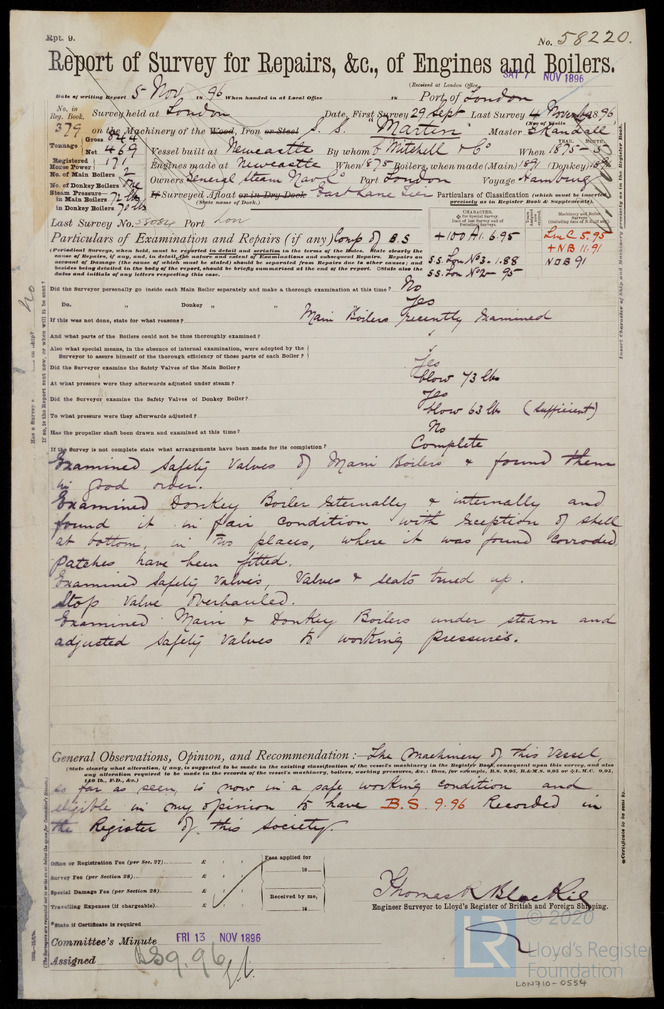 Rpt. 9.
No. 58220.
Report of Survey for Repairs, &c., of Engines and Boilers.
(Received at London Office
SAT 7 NOV 1896
Date of writing Report 5 Nov 1896 When handed in at Local Office 18 Port of London
No. in Reg. Book. 379
Survey held at London Date, First Survey 29 Sept Last Survey 4 November 1896
(No. of Visits
on the Machinery of the Wood, Iron or Steel S.S. "Martin" Master
Tonnage Gross 644 Net 469
Vessel built at Newcastle By whom C Mitchell & Co When 1875-
Registered Horse Power 171
Engines made at Newcastle When 1875 Boilers, when made (Main) 1891 (Donkey)
No. of Main Boilers 2
Owners General Steam Nav Co Port London Voyage Hamburg
No. of Donkey Boilers One
Steam Pressure in Main Boilers 72 lbs
in Donkey Boilers 70 lbs
If Surveyed Afloat or in Dry Dock East Lane Tier
(State name of Dock.)
Particulars of Classification (which must be inserted precisely as in Register Book & Supplements).
Last Survey No. Port Lon
Particulars of Examination and Repairs (if any) Comp of B.S
CHARACTER.
+100 A1. 6.95
S.S. Lon No 3- 1.88
S.S. Lon No 2- 95
Machinery and Boiler Surveys
LMC 5.95
+NB 11.91
NDB 91
(Periodical Surveys, when held, must be reported in detail and seriatim in the terms of the Rules. State clearly the
cause of Repairs, if any, and, in detail, the nature and extent of Examinations and subsequent Repairs. Repairs on
account of Damage (the cause of which must be stated) should be separated from Repairs due to other causes; and
besides being detailed in the body of the report, should be briefly summarised at the end of the report. State also the
dates and initials of any letters respecting this case.
Did the Surveyor personally go inside each Main Boiler separately and make a thorough examination at this time? No
Do. Donkey " " Yes
If this was not done, state for what reasons? Main Boilers recently examined
And what parts of the Boilers could not be thus thoroughly examined?
Also what special means, in the absence of internal examination, were adopted by the
Surveyor to assure himself of the thorough efficiency of those parts of each Boiler?
Did the Surveyor examine the Safety Valves of the Main Boiler? Yes
At what pressure were they afterwards adjusted under steam? blow 73 lbs
Did the Surveyor examine the Safety Valves of Donkey Boiler? Yes
To what pressure were they afterwards adjusted? blow 63 lbs (Sufficient)
Has the propeller shaft been drawn and examined at this time? No
If the Survey is not complete state what arrangements have been made for its completion? Complete
Examined Safety Valves of Main Boilers & found them
in good order.
Examined Donkey Boiler externally & internally and
found it in fair condition with exception of shell
at bottom, in two places, where it was found corroded
patches have been fitted.
Examined Safety valves, Valves & seats trued up.
Stop valve overhauled.
Examined Main & Donkey Boilers under steam and
adjusted Safety Valves to working pressures.
General Observations, Opinion, and Recommendation :— The Machinery of this Vessel,
(State clearly what alteration, if any, is suggested to be made in the existing classification of the vessel's machinery in the Register Book, consequent upon this survey, and also
any alteration required to be made in the records of the vessel's machinery, boilers, working pressures, &c.: thus, for example, B.S. 9,95, B.&M.S. 9,95 or +L.M.C. 9,95,
140 lb., F.D., &c.)
so far as seen, is now in a safe working condition and
eligible in my opinion to have B.S. 9.96 Recorded in
the Register of this Society.
Office or Registration Fee (per Sec. 27) £
Survey Fee (per Section 28) £
Special Damage Fee (per Section 28) £
Travelling Expenses (if chargeable) £
Fees applied for
18
Received by me,
18
Thomas R Blackie
Engineer Surveyor to Lloyd's Register of British and Foreign Shipping.
*State if Certificate is required
Committee's Minute FRI 13 NOV 1896
Assigned BS 9.96
LR
© 2020
Lloyd's Register
Foundation
LON710-0554